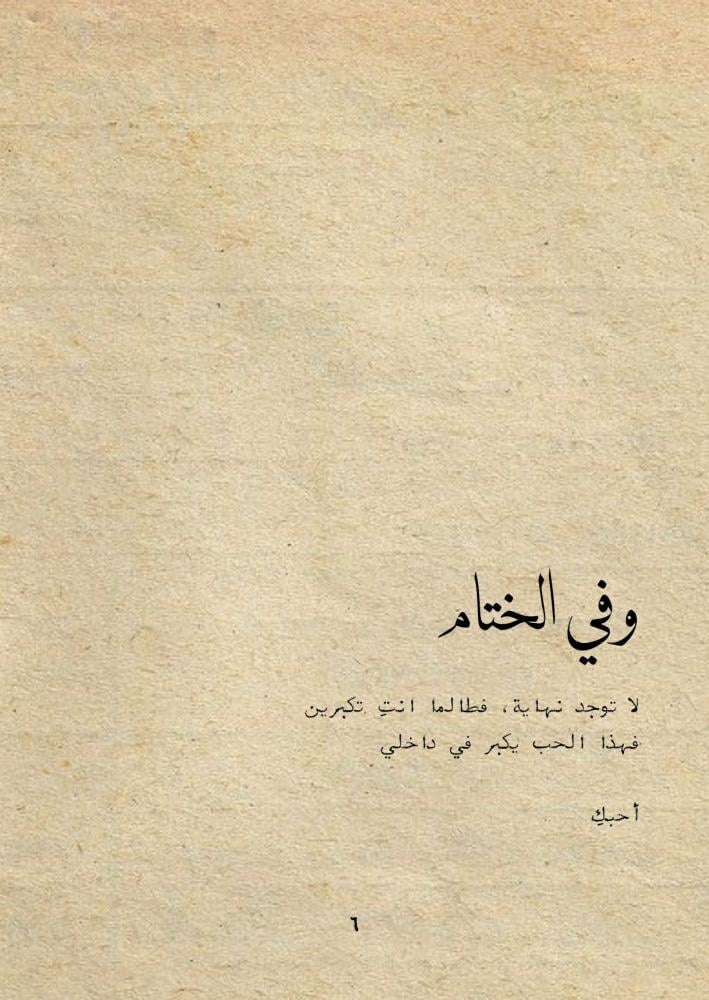 وفي الختام
لا توجد نهاية، فطالما انتِ تكبرين
فهذا الحب يكبر في داخلي
أحبكِ
٦